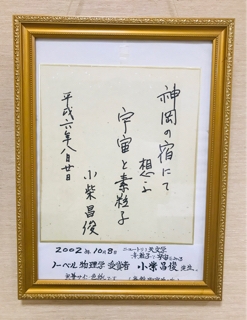 神岡の宿にて
想ふ
宇宙と素粒子
平成六年八月廿日
小柴昌俊
2002年10月8日
ニュートリノ天文学
ノーベル物理学受賞者 小柴昌俊先生